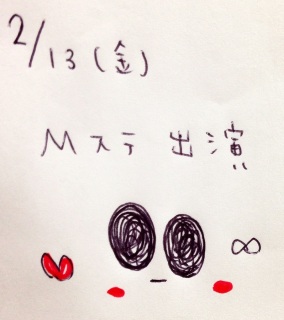 2/13(金)
Mステ 出演
∞